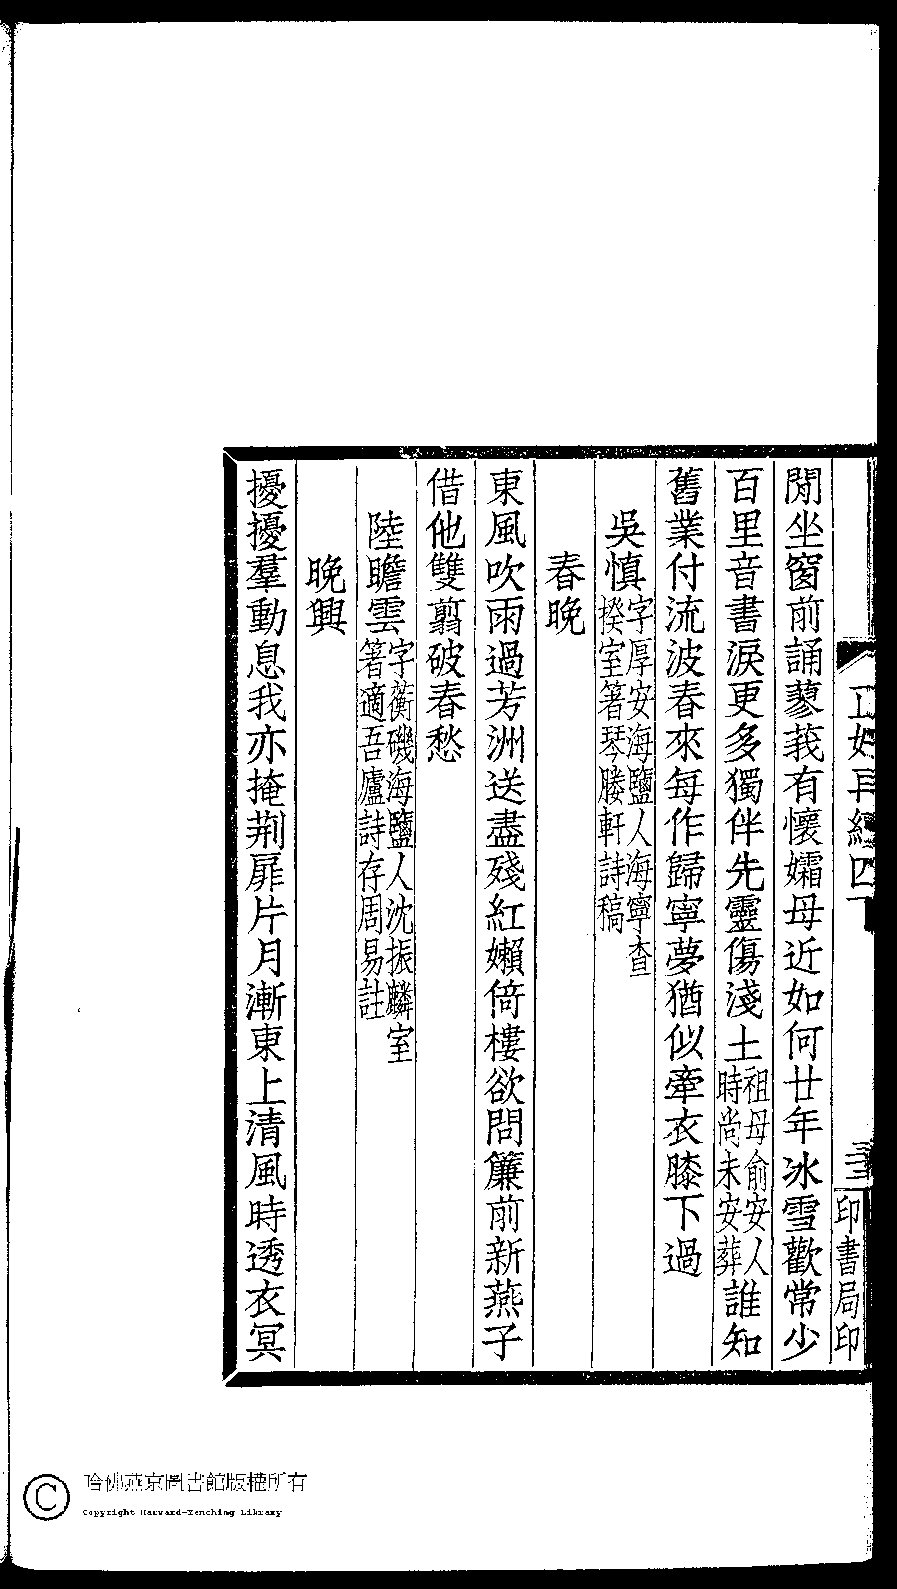 閒坐窗前誦蓼莪有懷孀母近如何廿年冰雪歡常少
百里音書淚更多獨伴先靈傷淺土祖母俞安人時尚未安葬誰知
舊業付流波春來每作歸寧夢猶似牽衣膝下過
吳慎字厚安海鹽人海寧查揆室箸琴媵軒詩稿
春晚
東風吹雨過芳洲送盡殘紅嬾倚樓欲問簾前新燕子
借他雙翦破春愁
陸瞻雲字蘅磯海鹽人沈振麟室箸適吾廬詩存周易註
晚興
擾擾羣動息我亦掩荆扉片月漸東上清風時透衣冥
三
印書局印
哈佛燕京圖書館版權所有
Copyright Harvard-Yenching Library